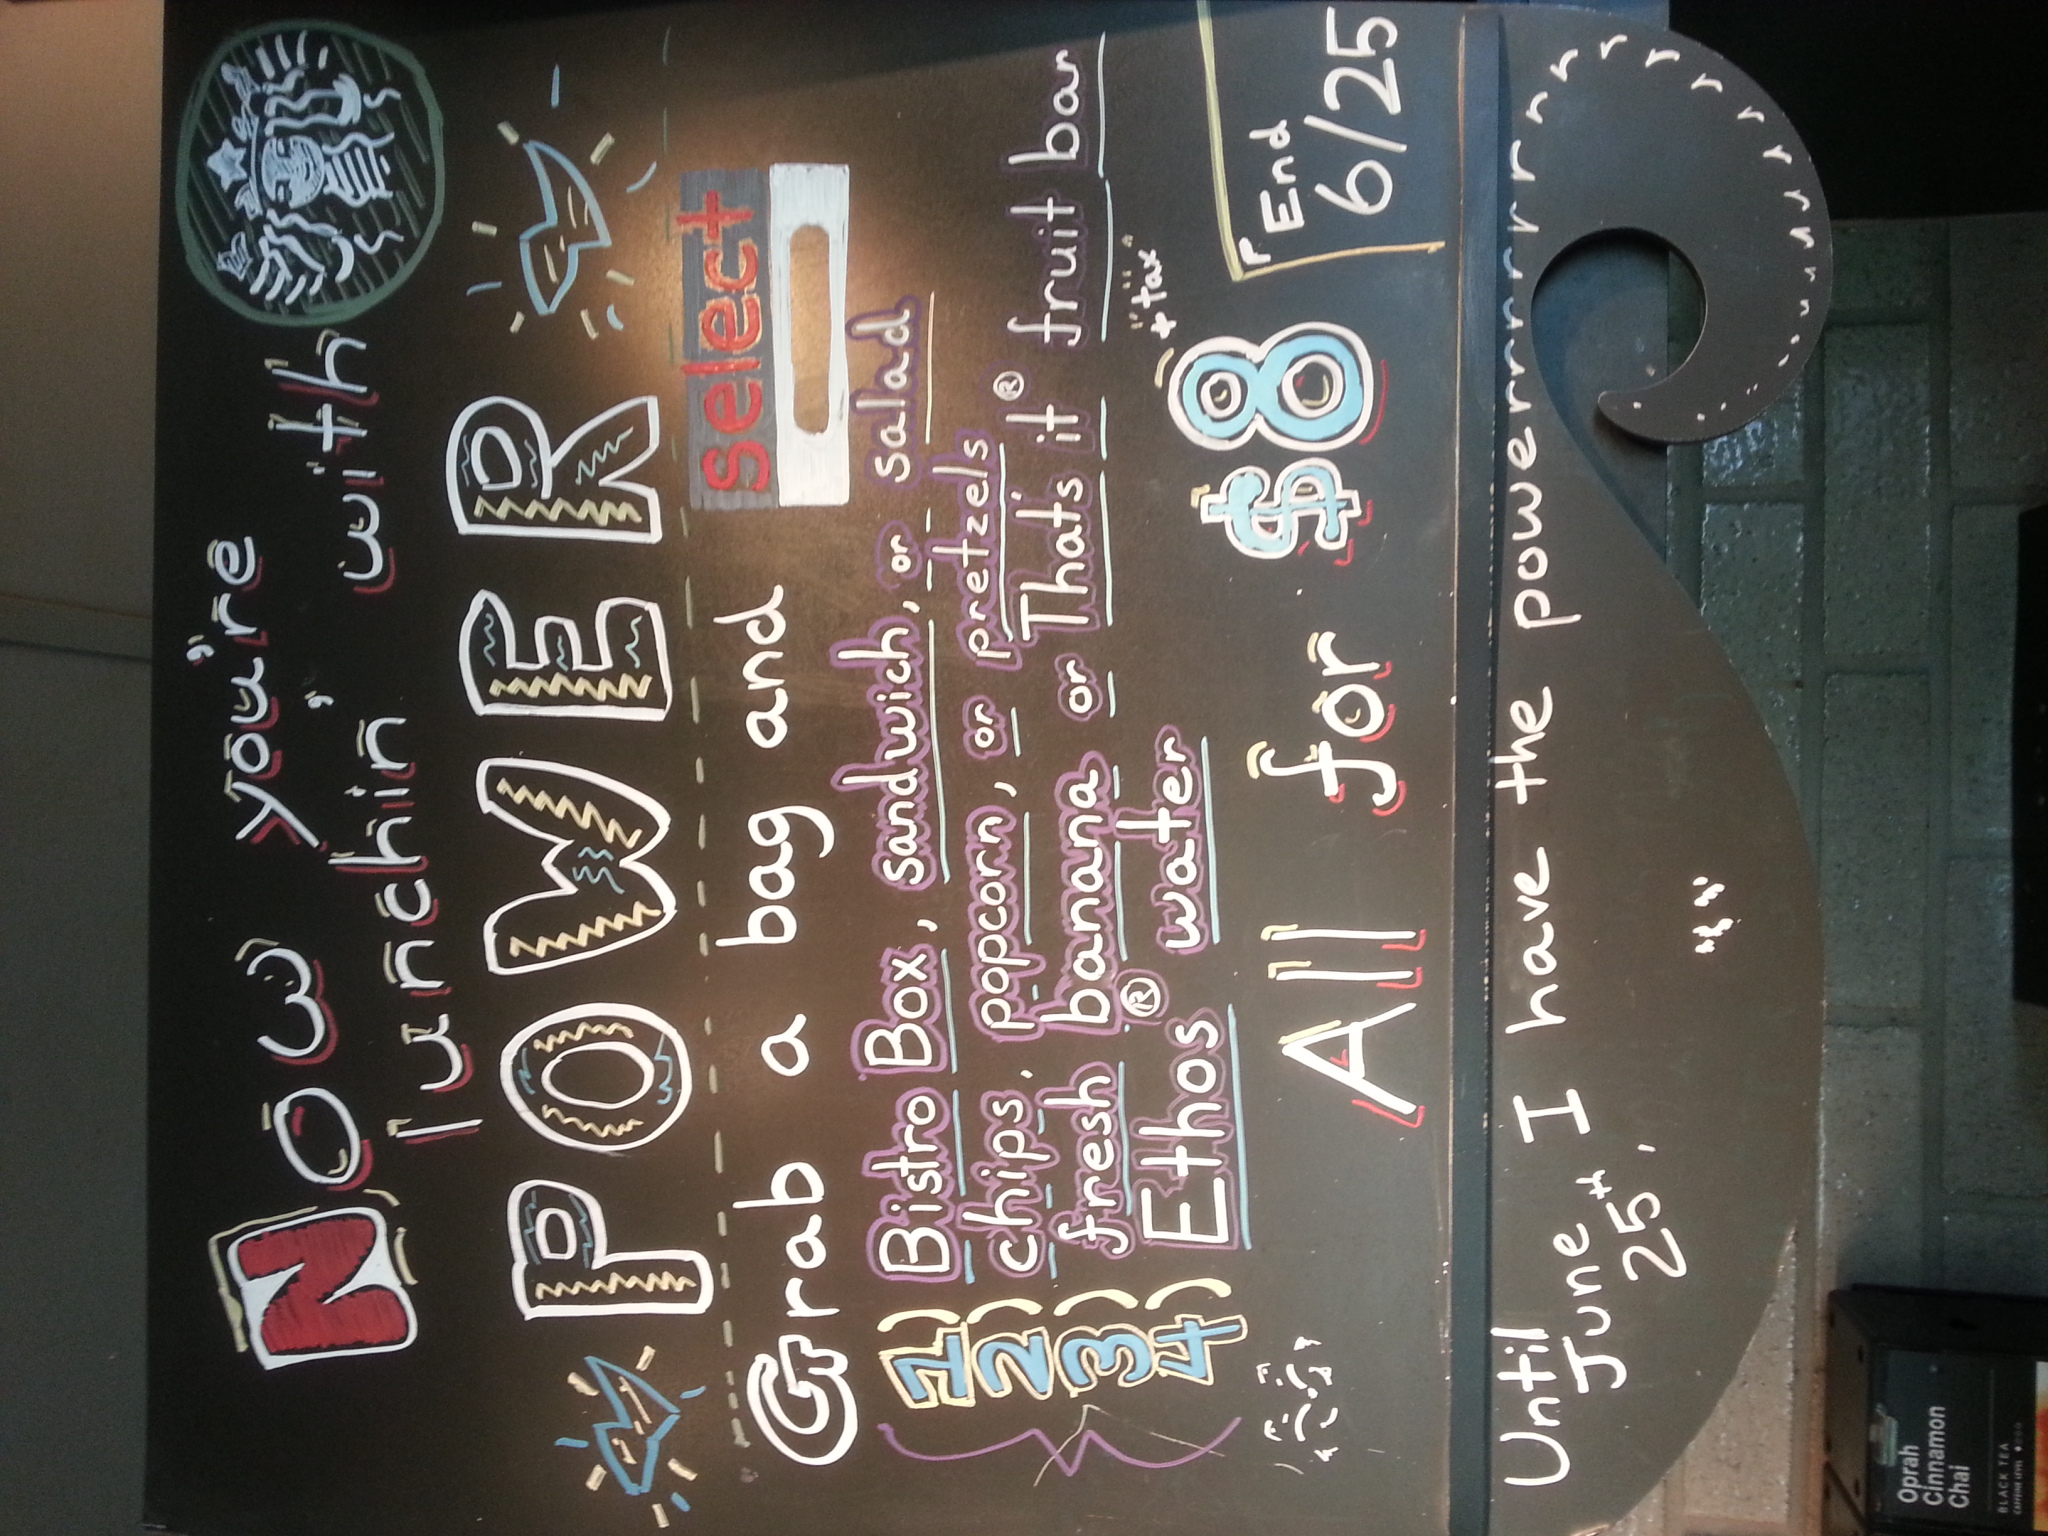 Now you're
lunchin' with
POWER
Grab a bag and select
1) Bistro Box, sandwich, or salad
2) chips, popcorn, or pretzels
3) fresh banana or That's it® fruit bar
4) Ethos® water
"+tax"
All for $8
End
6/25
Until I have the powerrrrrrrrrrr
June 25th,
Oprah
Cinnamon
Chai
BLACK TEA